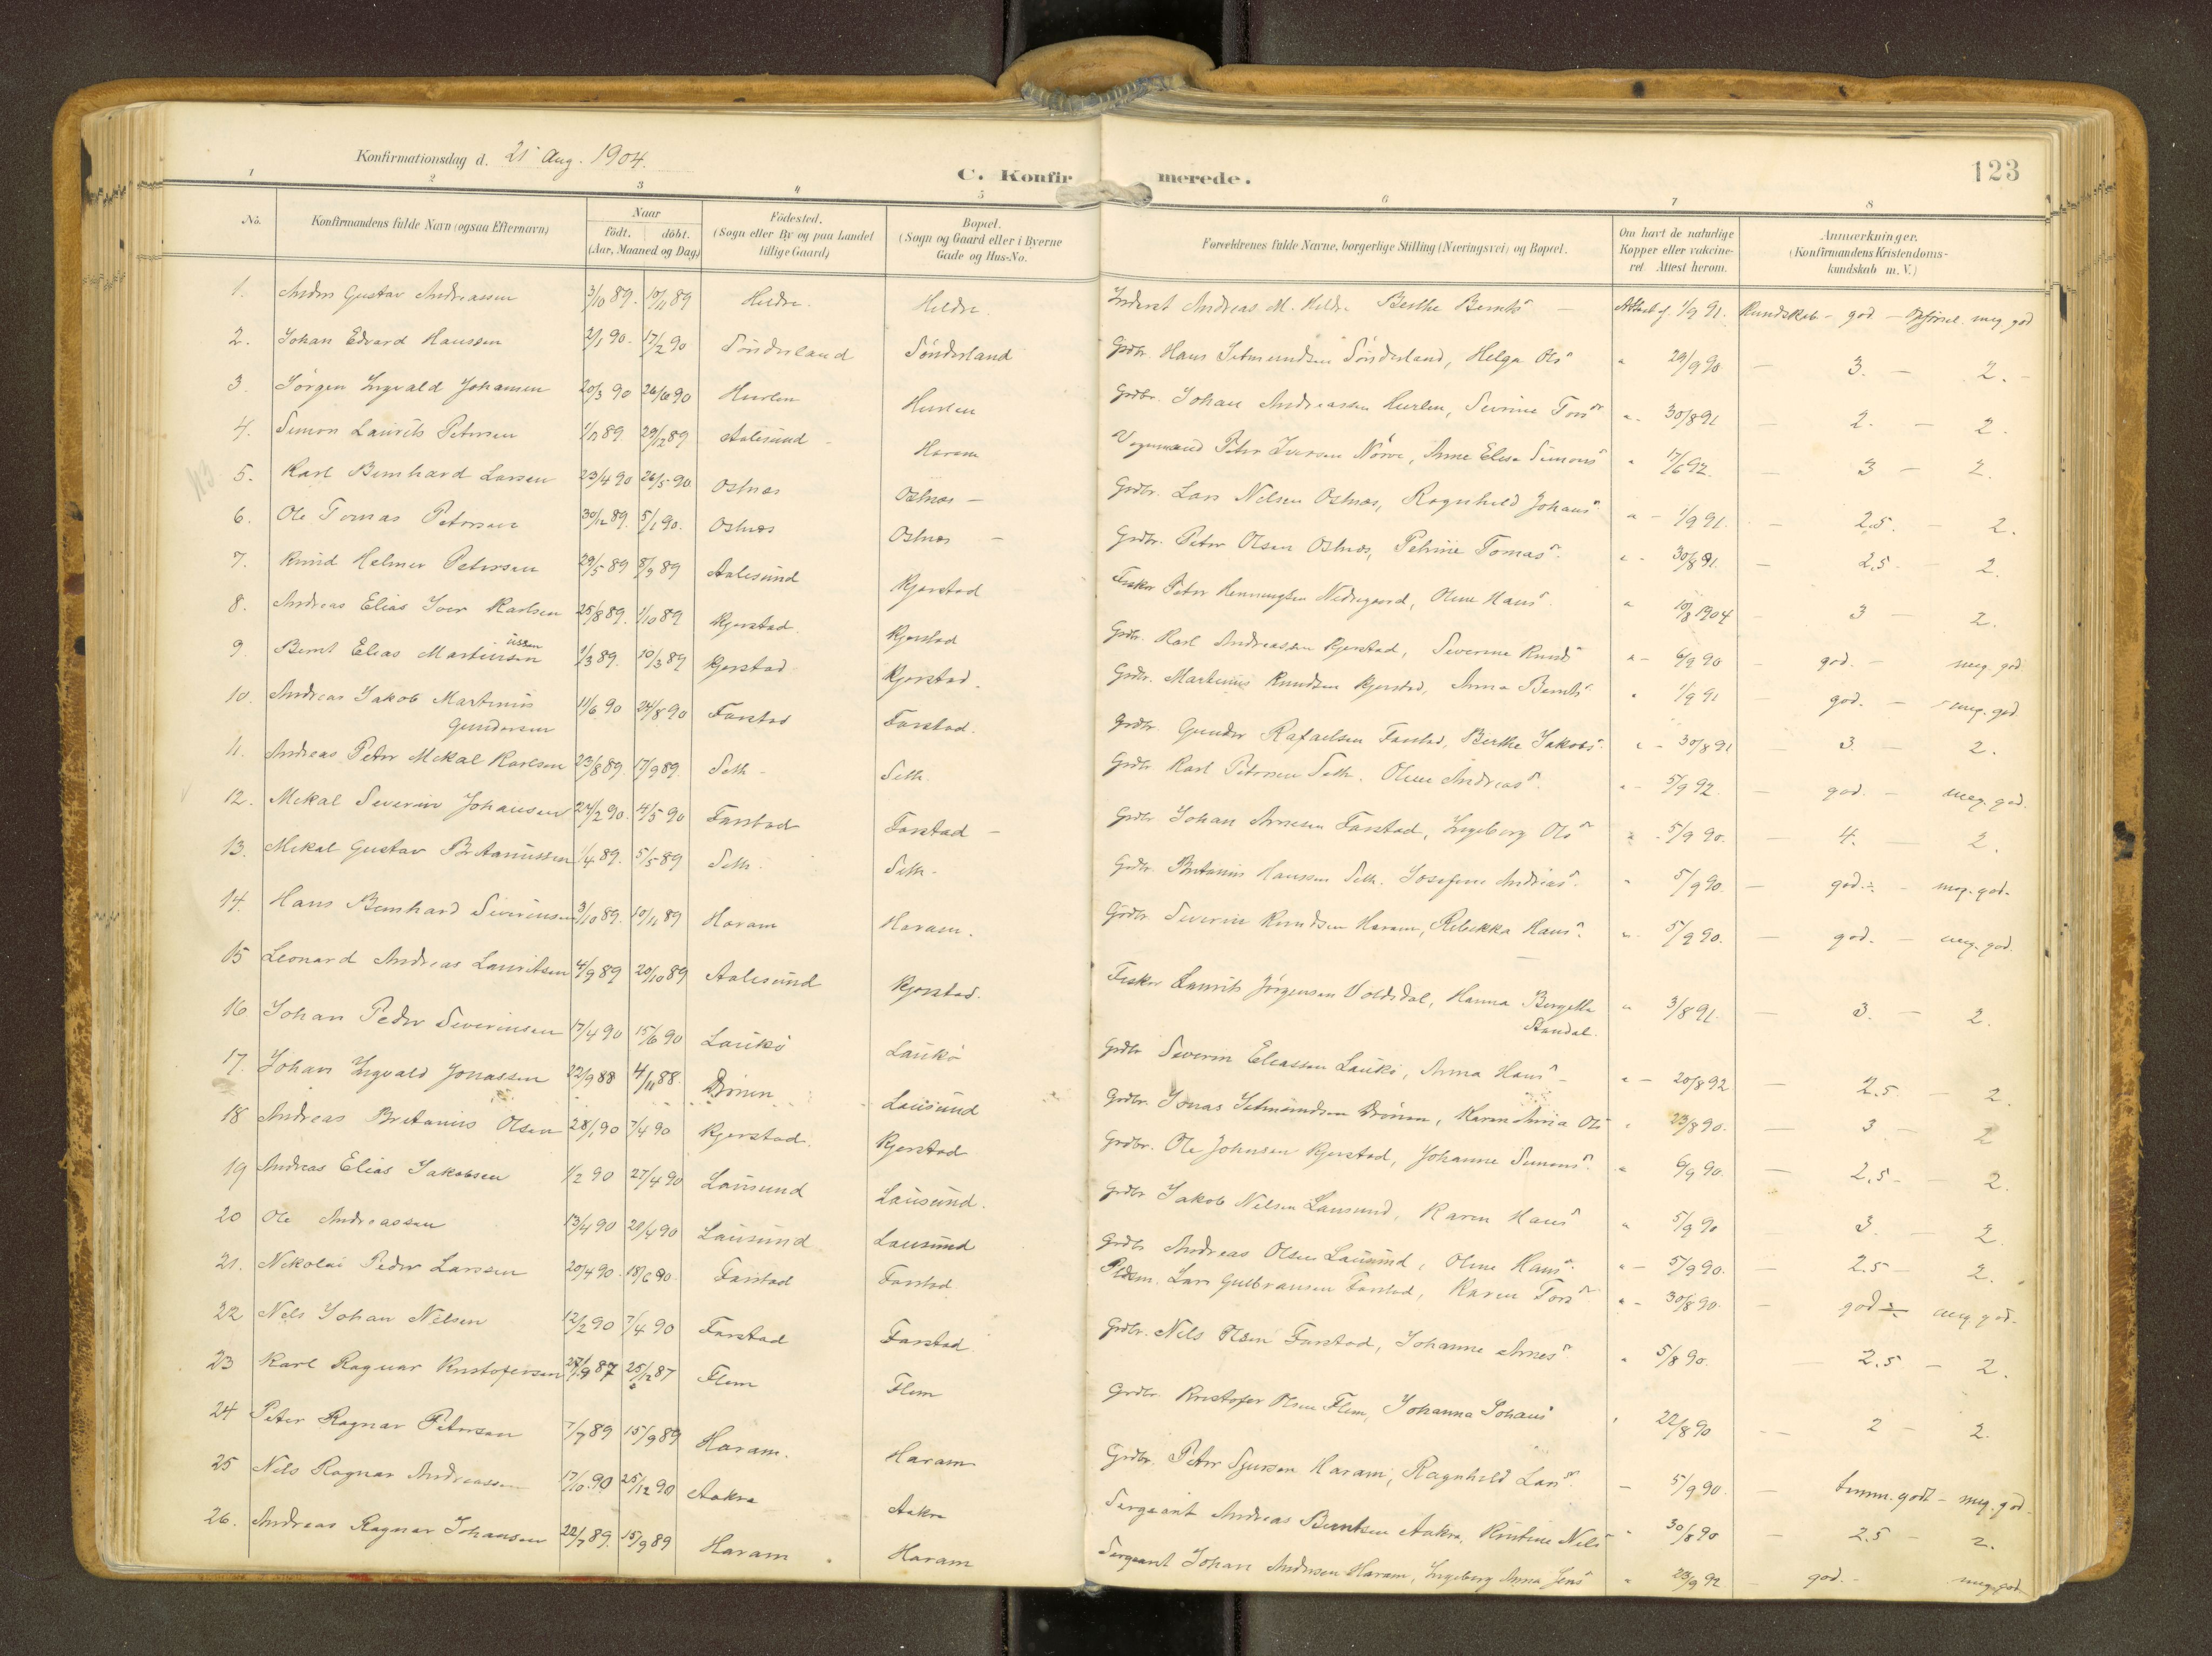 Konfirmationsdag d. 21 Aug. 1904.
C. Konfirmerede.
123
1 2 3 4 5 6 7 8
No. Konfirmandens fulde Navn (ogsaa Efternavn) Naar födt. döbt. (Aar, Maaned og Dag) Födested. (Sogn eller By og paa Landet tillige Gaard) Bopæl. (Sogn og Gaard eller i Byerne Gade og Hus-No. Forældrenes fulde Navne, borgerlige Stilling (Næringsvei) og Bopæl. Om havt de naturlige Kopper eller vaksineret Attest herom. Anmærkninger. (Konfirmandens Kristendomskundskab m. V.)
1. Anders Gustav Andreassen 3/10 89. 10/11 89 Hildre. Hildre. Andreas M. Hildre Berthe Bernts Attest af 1/9 91. Kundskab - god - Opførsel meg. god
2. Johan Edvard Hanssen 2/1 90. 17/2 90 Sønderland Sønderland Grdbr. Hans Sønderland, Helga Ols " 29/9 90 - 3. - 2. -
3. Jörgen Ingvald Johansen 20/3 90 26/6 90 Hurlen Hurlen Grdbr. Johan Andreassen Hurlen, Sevrine Tors " - 30/8 91 - 2. - 2.
4. Simon Laurits Petersen 29/12 89 Aalesund - Haram Vognmand Peter Iversen Nörve, Anne Elise Simons " 17/6 92. - 3 - 2.
5. Karl Bernhard Larsen 23/4 90 26/5 90 Ostnes Ostnes - Grdbr. Lars Nilsen Ostnes, Ragnhild Johans " - 1/9 91. - 2.5. - 2.
6. Ole Tomas Petersen 30/12 89. 5/1 90. Ostnes Ostnes - Grdbr. Peter Olsen Ostnes, Petrine Tomas " - 30/8 91. - 2.5 - 2.
7. Knud Helmer Petersen 29/5 89 8/9 89 Aalesund Kjerstad Fisker Peter Henningsen Nedregaard, Oline Hans " 10/8 1904 - 3 - 2.
8. Andreas Elias Iver Karlsen 25/8 89. 1/10 89 Kjerstad. Kjerstad Grdbr. Karl Andreassen Kjerstad, Severine Knuds " - 6/9 90 - god. - meg. god
9. Bernt Elias Martinussen 1/3 89. 10/3 89 Kjerstad Kjerstad. Grdbr. Martinus Knudsen Kjerstad, Anna Bernts " 1/9 91 - god. - meg. god.
10. Andreas Jakob Martinus Gundersen 11/6 90 24/8 90 Farstad Farstad. Grdbr. Gunder Rafaelsen Farstad, Berthe Jakobs " - 30/8 91 - 3. - 2.
11. Andreas Peter Mikal Karlsen 23/8 89. 17/9 89. Seth - Seth. Grdbr. Karl Petersen Seth. Oline Andreas " - 5/9 92. - god. - meg. god.
12. Mikal Severin Johansen 24/2 90. 4/5 90 Farstad Farstad - Grdbr. Johan Arnesen Farstad, Ingeborg Ols " - 5/9 90. - 4. - 2.
13. Mikal Gustav Britanussen 1/4 89. 5/5 89 Seth. Seth. Grdbr. Britanus Hanssen Seth. Josefine Andreas " 5/9 90. - god. ÷ - meg. god.
14. Hans Bernhard Severinsen 3/10 89. 10/11 89 Haram Haram. Grdbr. Severin Knudsen Haram, Rebekka Hans " 5/9 90. - god. - meg. god.
15 Leonard Andreas Lauritsen 4/9 89 20/10 89 Aalesund Kjerstad. Fisker Laurits Jørgensen Voldsdal, Hanna Bergitte Standal. " 3/8 91. - 3. - 2.
16 Johan Peder Severinsen 17/4 90 15/6 90 Laukö Laukö Grdbr. Severin Eliassen Laukö, Anna Hans " - 20/8 92 - 2.5 - 2
17. Johan Ingvald Jonassen 22/9 88 4/11 88. Drönen Lausund Grdbr. Jonas Drönen, Karen Anna Ols " 23/8 90. - 3 - 2
18 Andreas Britanus Olsen 28/1 90 7/4 90 Kjerstad. Kjerstad Grdbr. Ole Johnsen Kjerstad, Johanne Simons " 6/9 90. - 2.5 - 2.
19 Andreas Elias Jakobsen 1/2 90 27/4 90 Lausund Lausund. Grdbr. Jakob Nilsen Lausund, Karen Hans " 5/9 90 - 3. - 2.
20 Ole Andreassen 13/4 90 20/4 90 Lausund Lausund Grdbr. Andreas Olsen Lausund, Oline Hans " - 5/9 90. - 2.5 - 2.
21. Nikolai Peder Larssen 20/4 90. 18/6 90. Farstad Farstad. Pldsm. Lars Gulbransen Farstad, Karen Tors " - 30/8 90. - god ÷ meg. god.
22 Nils Johan Nilsen 12/2 90 7/4 90 Farstad Farstad. Grdbr. Nils Olsen Farstad, Johanne Arnes " 5/8 90. - 2.5 - 2.
23 Karl Ragnar Kristofersen 27/9 87 25/12 87 Flem Flem Grdbr. Kristofer Olsen Flem, Johanna Johans " 22/8 90 - 2 - 2.
24 Peter Ragnar Petersen 7/7 89 15/9 89 Haram. Haram Grdbr. Peter Sjursen Haram, Ragnhild Lars - 5/9 90. - temm. godt - meg. god.
25 Nils Ragnar Andreassen 17/10 90 25/12 90 Aakre Aakre Sergeant Andreas Berntsen Aakre, Kristine Nils " 30/8 90 - 2.5 - 2.
26. Andreas Ragnar Johansen 22/7 89. 15/9 89 Haram Haram Sergeant Johan Andersen Haram, Ingeborg Anna Jens " 23/9 92 - god. - meg. god.